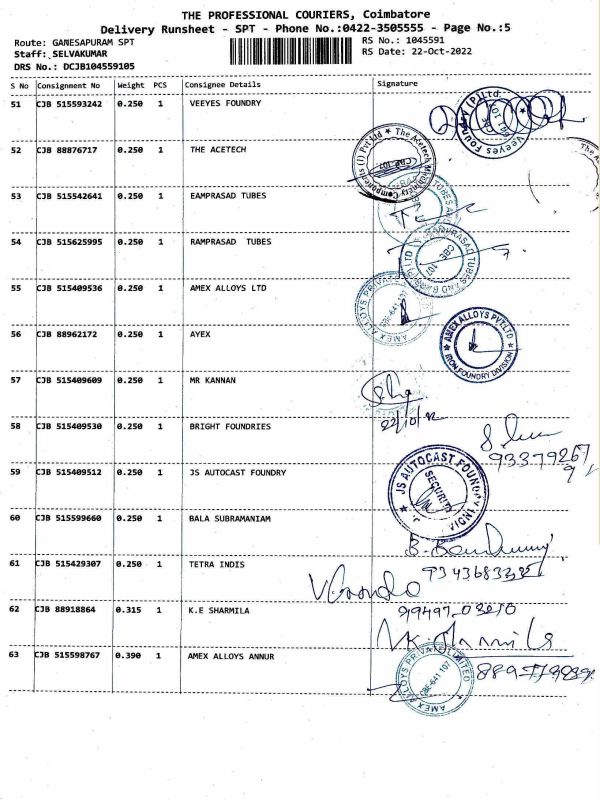 THE PROFESSIONAL COURIERS, Coimbatore
Delivery Runsheet - SPT - Phone No.:0422-3505555 - Page No.:5
Route: GANESAPURAM SPT
RS No.: 1045591
Staff: SELVAKUMAR
RS Date: 22-Oct-2022
DRS No.: DCJB104559105
S No Consignment No Weight PCS Consignee Details Signature
51 CJB 515593242 0.250 1 VEEYES FOUNDRY
Veeyes Foundry (P) Ltd.
52 CJB 88876717 0.250 1 THE ACETECH
The Acetech Machinery Components (I) Pvt Ltd
53 CJB 515542641 0.250 1 EAMPRASAD TUBES
54 CJB 515625995 0.250 1 RAMPRASAD TUBES
RAMPRASAD TUBES AND BARS (P) LTD
55 CJB 515409536 0.250 1 AMEX ALLOYS LTD
AMEX ALLOYS PRIVATE
56 CJB 88962172 0.250 1 AYEX
AMEX ALLOYS PVT LTD
IRON FOUNDRY DIVISION
57 CJB 515409609 0.250 1 MR KANNAN
58 CJB 515409530 0.250 1 BRIGHT FOUNDRIES
59 CJB 515409512 0.250 1 JS AUTOCAST FOUNDRY
JS AUTOCAST FOUNDRY INDIA
SECURITY
60 CJB 515599660 0.250 1 BALA SUBRAMANIAM
61 CJB 515429307 0.250 1 TETRA INDIS
62 CJB 88918864 0.315 1 K.E SHARMILA
63 CJB 515598767 0.390 1 AMEX ALLOYS ANNUR
AMEX ALLOYS PRIVATE LIMITED
CBE-641 107